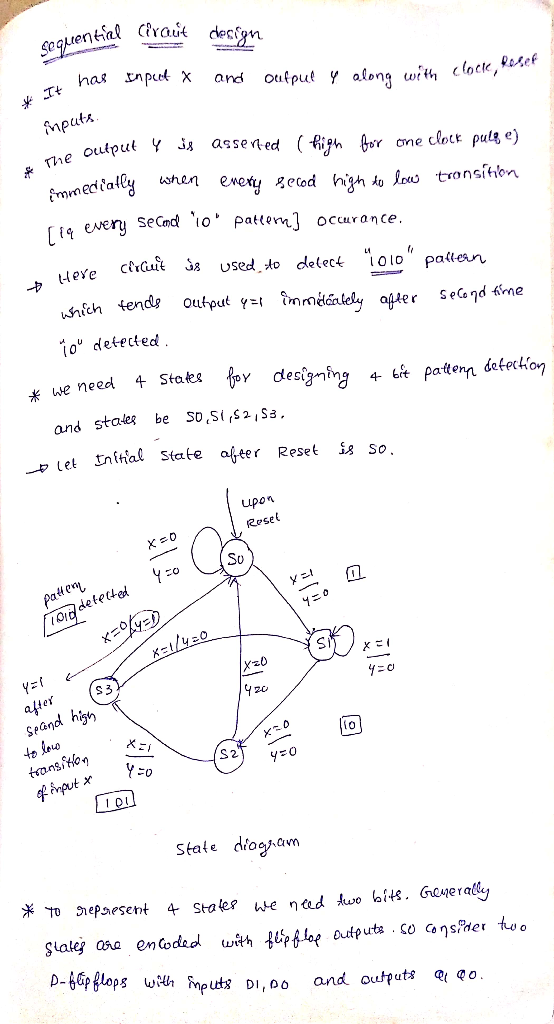 sequential Circuit design
* It has Input X and output Y along with clock, Reset
inputs.
* The output Y is asserted (high for one clock pulse)
immediatly when every secod high to low transition
[ie every second "10" pattern] occurance.
→ Here circuit is used to detect "1010" pattern
which tends output y=1 immediately after second time
"10" detected.
* we need 4 states for designing 4 bit pattern detection
and states be S0,S1,S2,S3.
→ Let Initial State after Reset is S0.
upon
Reset
X=0
Y=0
S0
X=1
Y=0
1
pattern
1010 detected
X=0/Y=1
X=1/Y=0
S1
X=1
Y=0
X=0
Y=0
Y=1
after
second high
to low
transition
of input x
S3
X=1
Y=0
101
S2
X=0
Y=0
10
State diagram
* To represent 4 states we need two bits. Generally
States are encoded with flipflop outputs. so consider two
D-flipflops with inputs D1,D0 and outputs Q1 Q0.